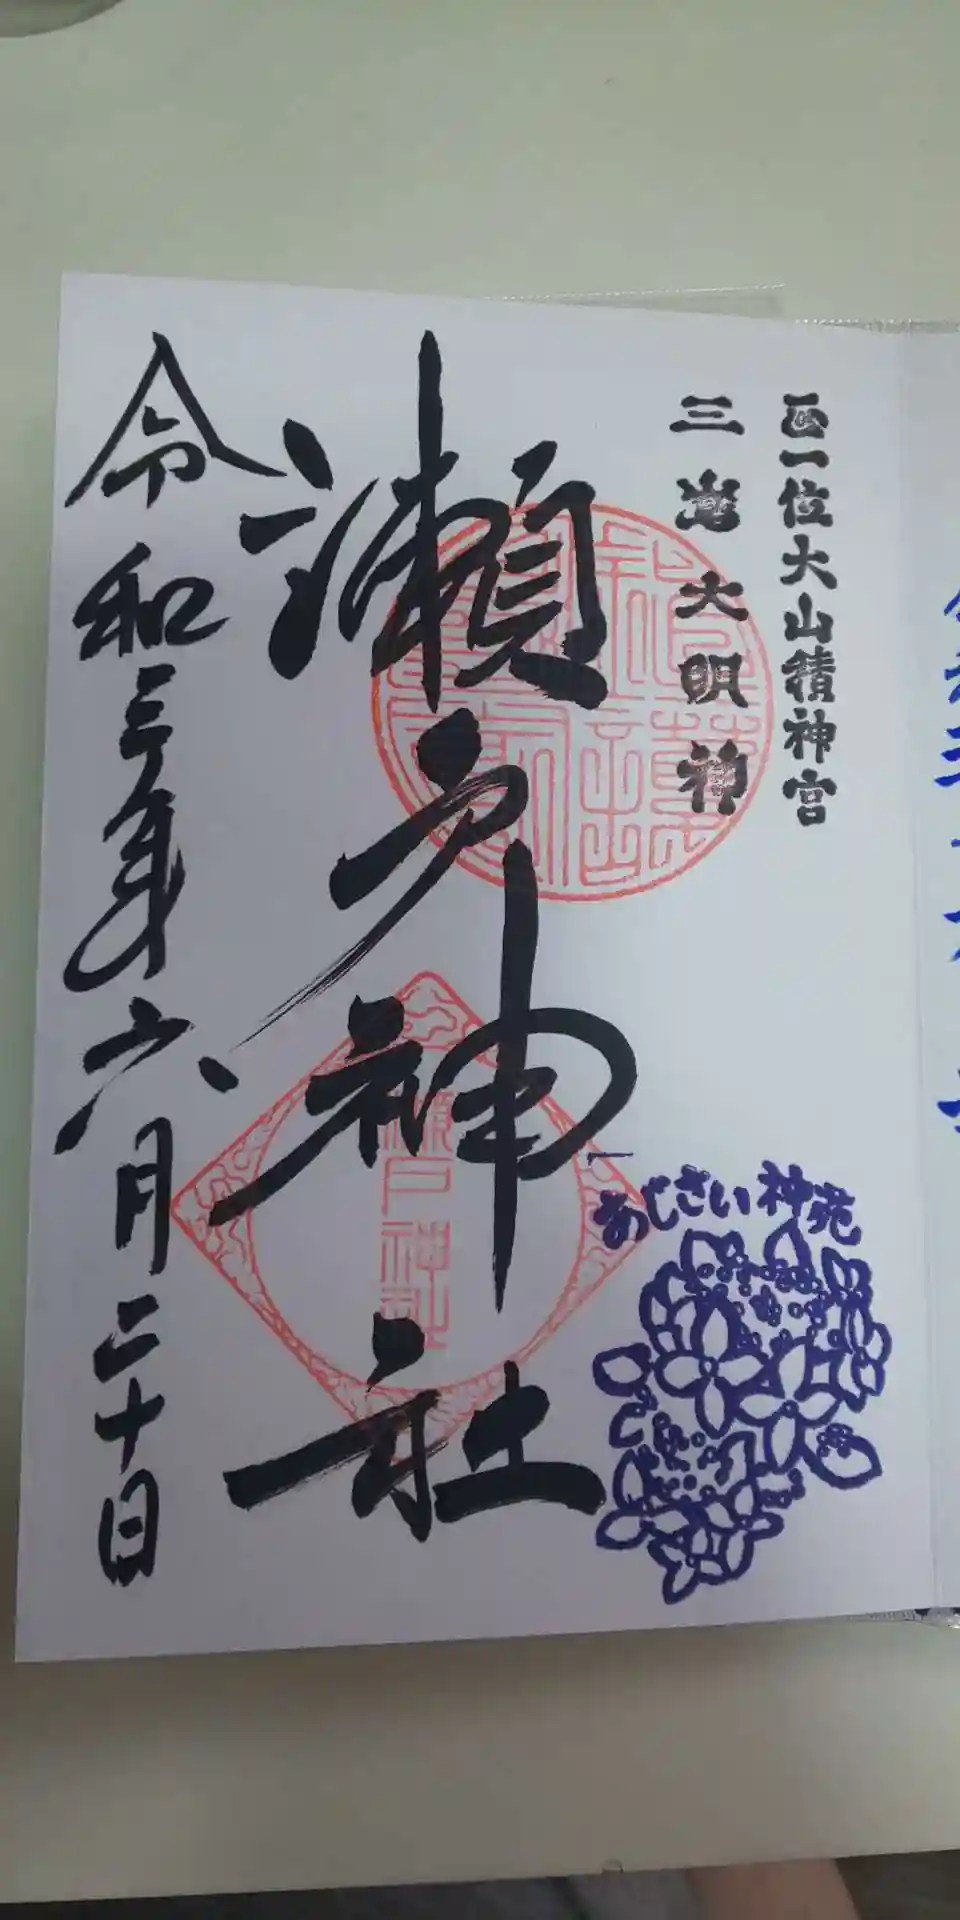 正一位大山積神宮
三嶌大明神
瀬戸神社
令和三年六月二十日
あじさい神苑
瀬戸神社